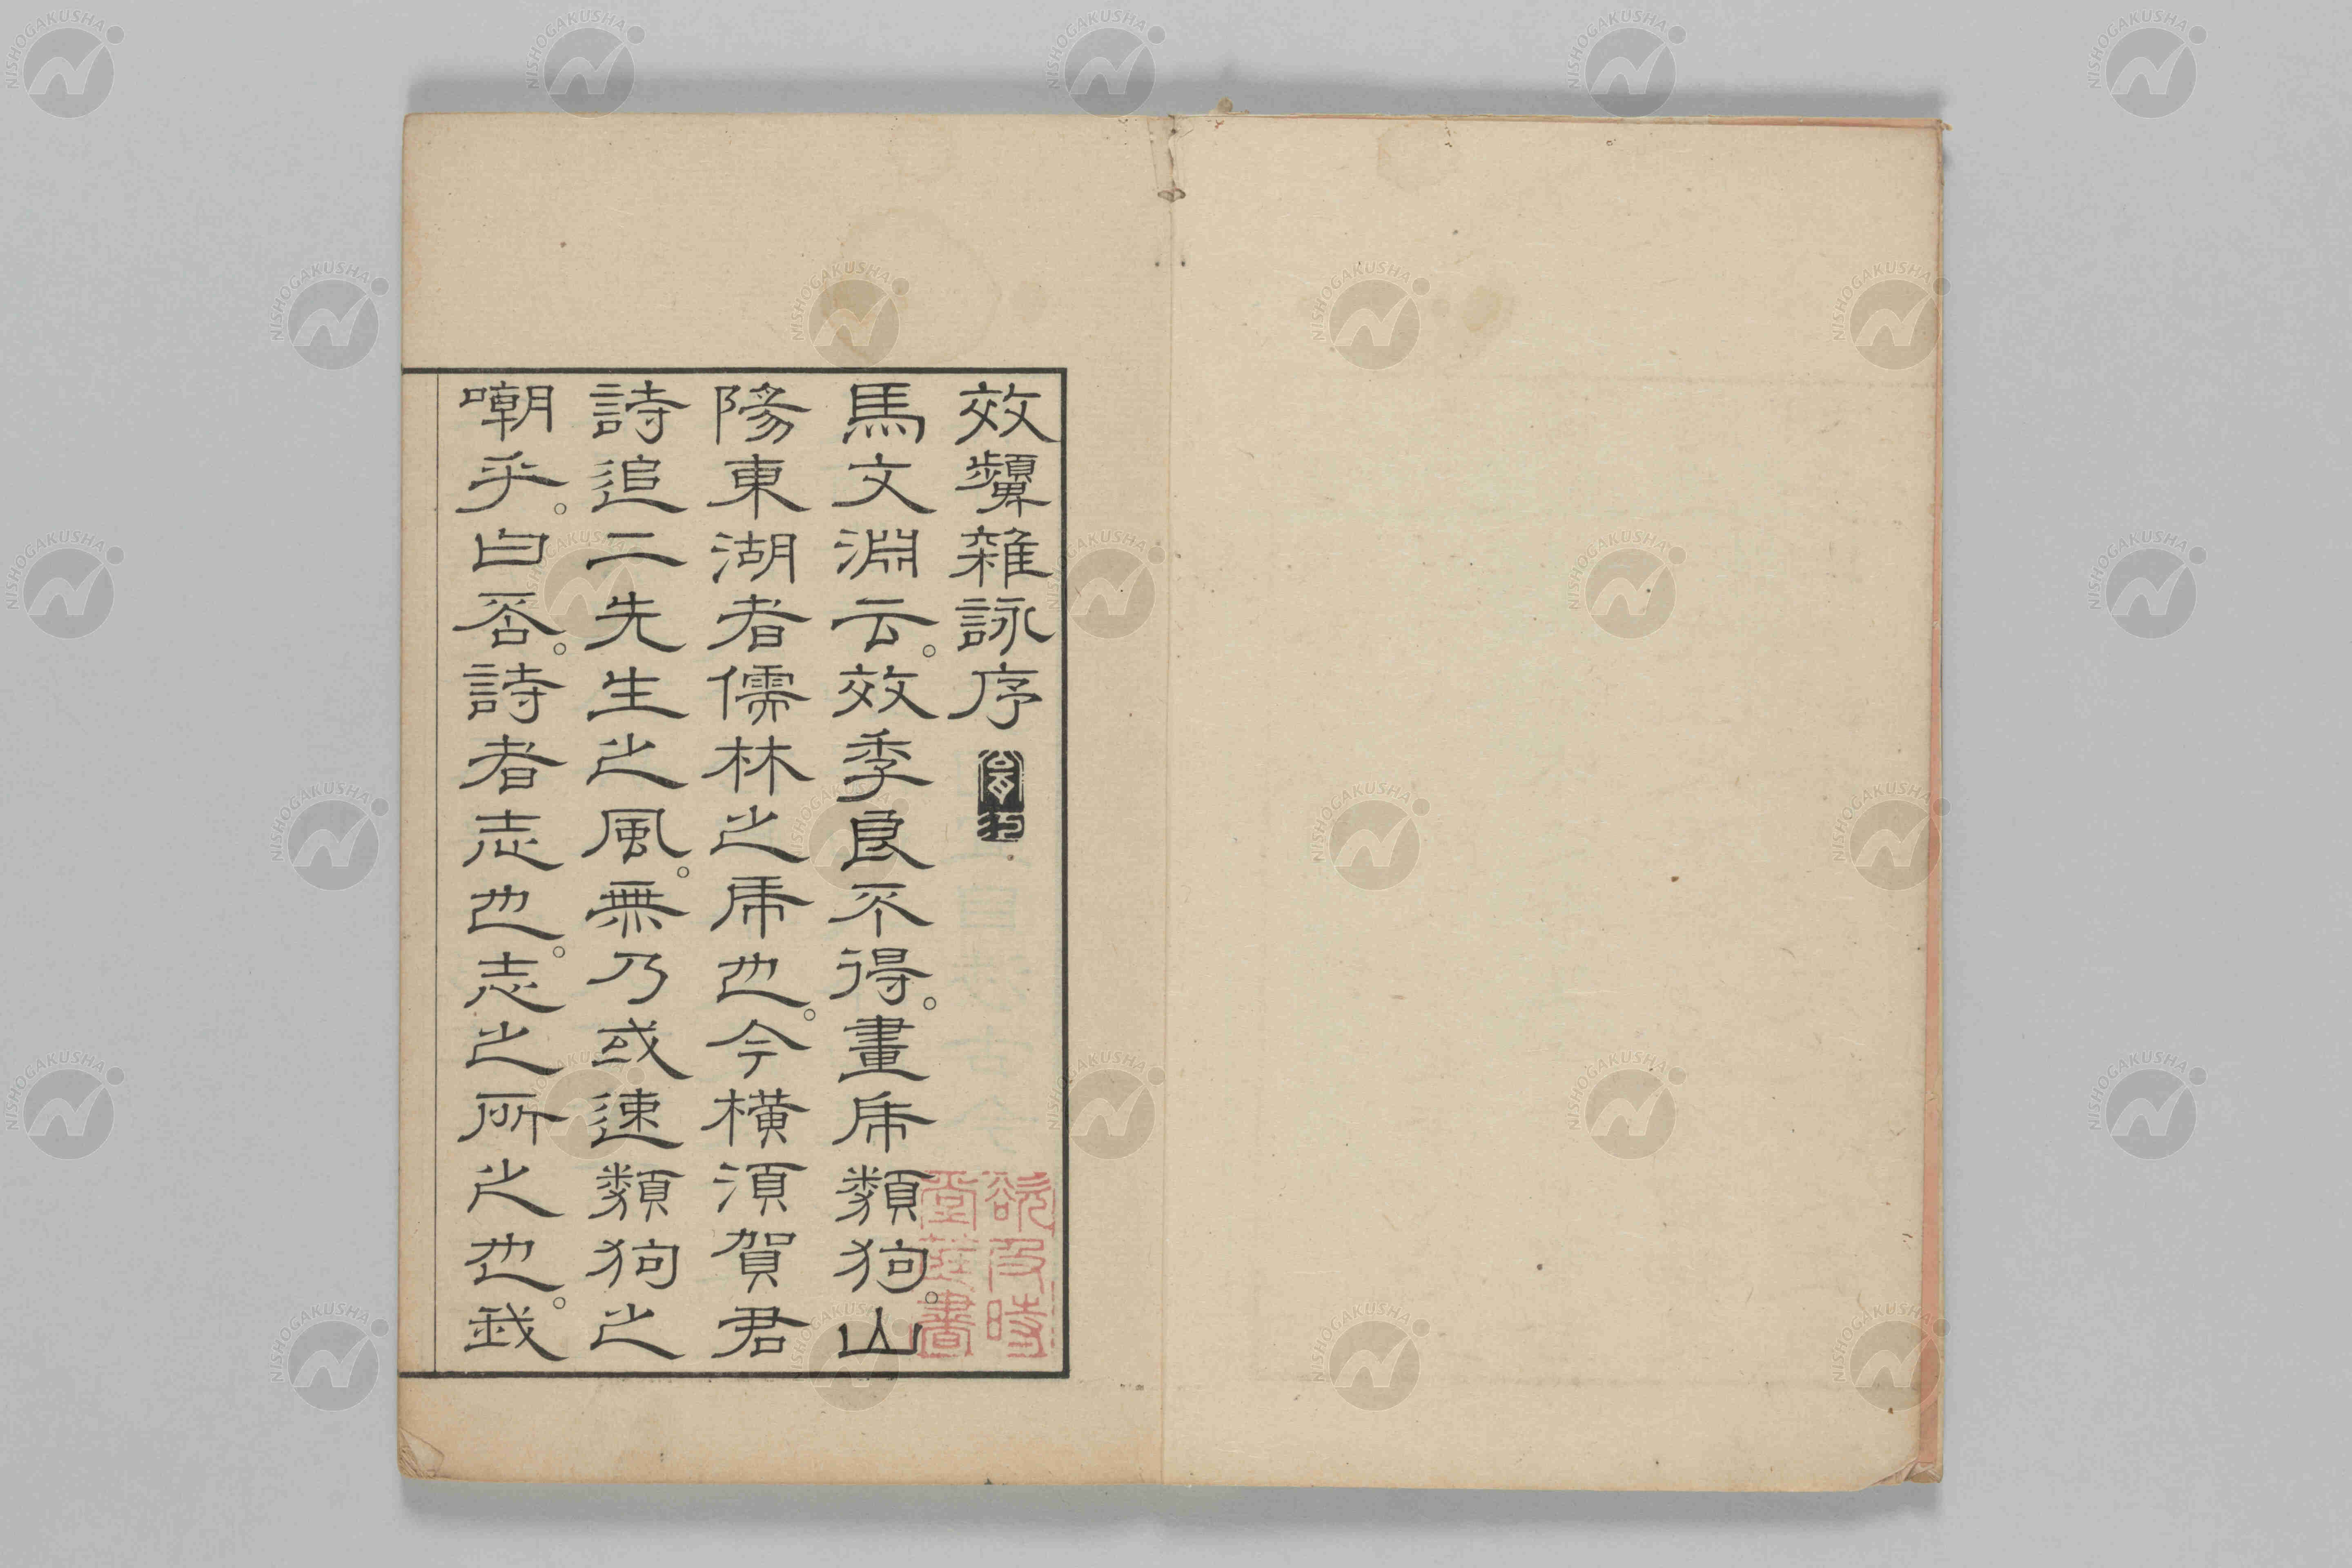 效顰雜詠序
馬文淵云。效季良不得。畫虎類狗。山
陽東湖者儒林之虎也。今橫須賀君
詩追二先生之風。無乃或速類狗之
嘲乎。曰否。詩者志也。志之所之也。我
及時
堂藏書
NISHOGAKUSHA